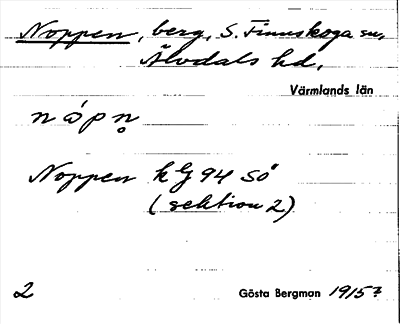 Noppen, berg, S. Finnskoga sn,
Älvdals hd,
Värmlands län
nǻpn̥
Noppen k G 94 SÖ
(sektion 2)
2 Gösta Bergman 1915?